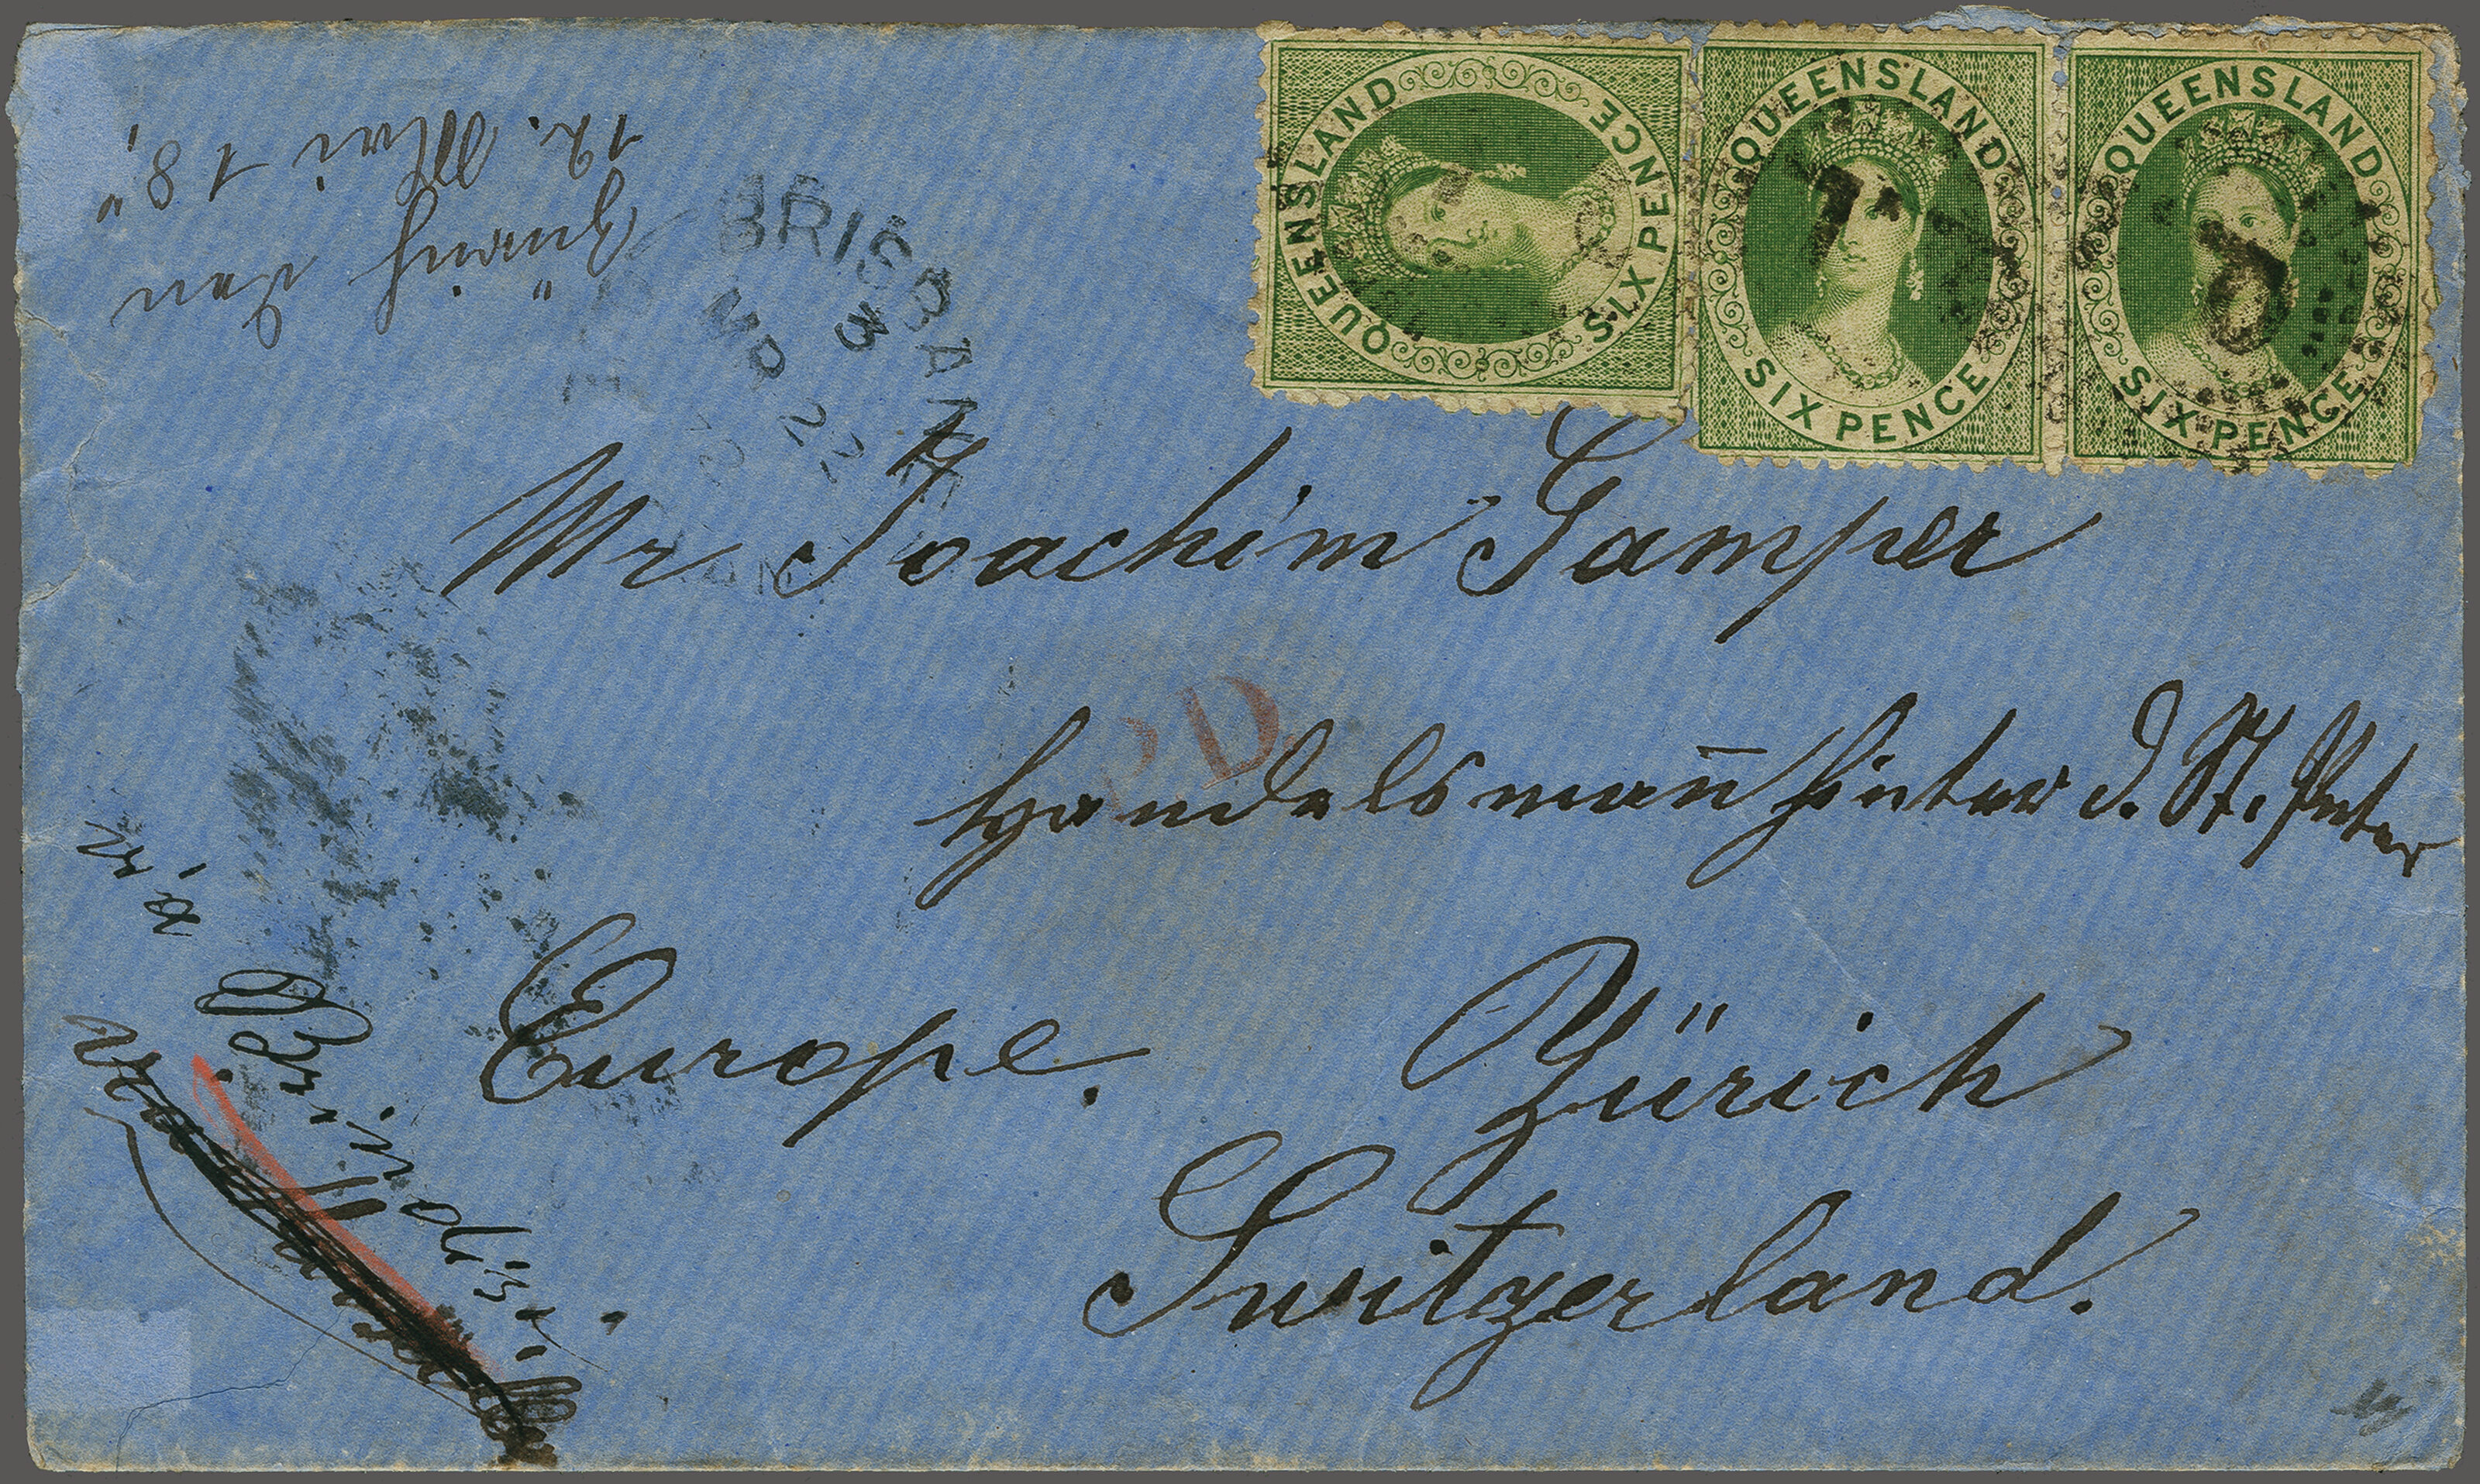 QUEENSLAND
SIX PENCE
QUEENSLAND
SIX PENCE
QUEENSLAND
SIX PENCE
Zürich den
12. Mai 18
BRISBANE
3
MR 22
Mr Joachim Gamper
P.D.
Handelsmañ hinter d. St. Peter
Europe. Zürich
Switzerland.
via Brindisi.
via